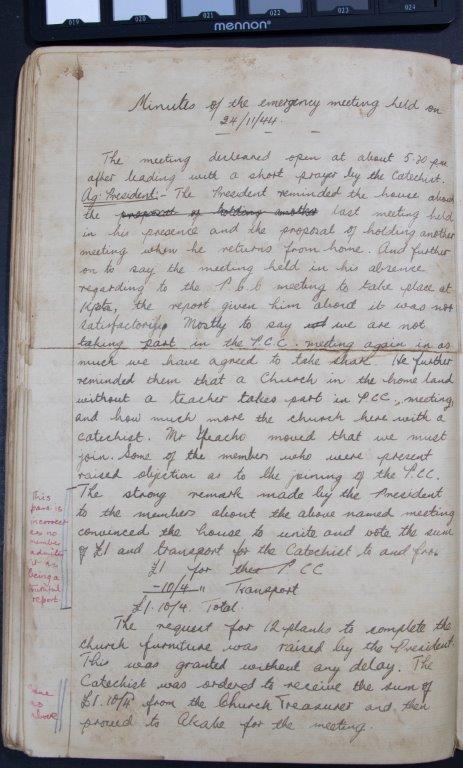 019 020 021 022 023 024
mennon
Minutes of the emergency meeting held on
24/11/44.
The meeting decleared open at about 5.30 pm
after leading with a short prayer by the Catechist.
Ag: President:- The President reminded the house about
the proposal of holding another last meeting held
in his presence and the proposal of holding another
meeting when he returns from home. And further
on to say the meeting held in his absence
regarding to the P.C.C meeting to take place at
the report given him about it was not
satisfactorily Mostly to say we are not
taking part in the P.C.C. meeting again in as
much we have agreed to take that. He further
reminded them that a Church in the home land
without a teacher takes part in P.C.C., meeting
and how much more the church here with a
catechist. Mr moved that we must
join. Some of the members who were present
raised objection as to the joining of the P.C.C.
The strong remark made by the President
to the members about the above named meeting
convinced the house to unite and vote the sum
of £1 and transport for the Catechist to and fro.
£1 for P.CC
-10/4 " Transport
£1.10/4. Total.
The request for 12 planks to complete the
church furniture was raised by the President.
This was granted without any delay. The
Catechist was ordered to receive the sum of
£1.10/4 from the Church Treasurer and then
proceed to for the meeting.
This
para is
incorrect
as no
member
admits
it as
being a
truthful
report
Same
as
above